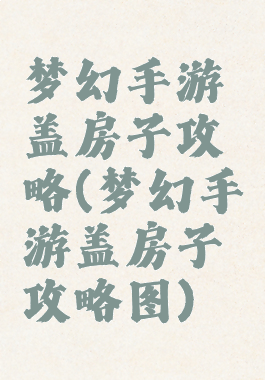 梦幻手游
盖房子攻
略(梦幻手
游盖房子
攻略图)